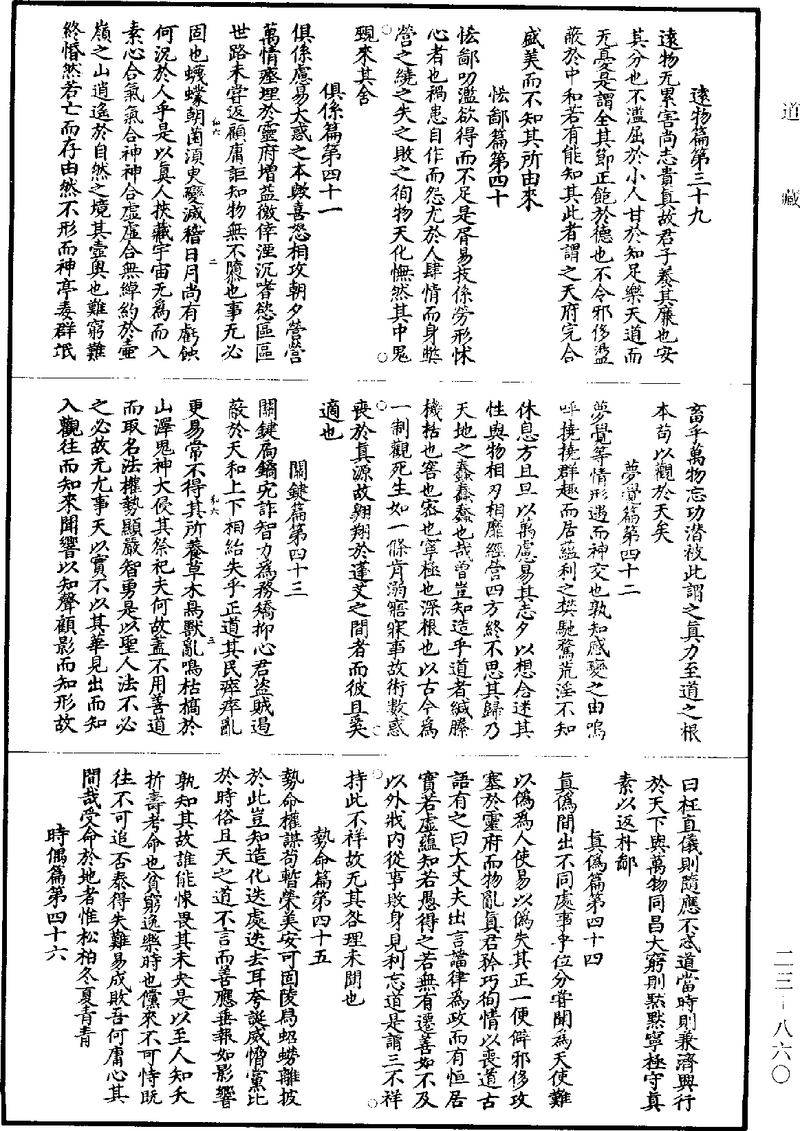 道藏
遠物篇第三十九
遠物无累害尚志貴真故君子養其廉也安
其分也不濫屈於小人甘於知足樂天道而
无憂是謂全其節正飽於德也不令邪侈盪
蔽於中和若有能知其此者謂之天府完合
盛美而不知其所由來
怯鄙篇第四十
怯鄙叨濫欲得而不足是胥易技係勞形怵
心者也禍患自作而怨尤於人肆情而身獘
營之繞之失之敗之徇物天化憮然其中鬼
覡來其舍
俱係篇第四十一
俱係慮易大惑之本歟喜怒相攻朝夕營營
萬情瘞埋於靈府增益徼倖湮沉嗜慾區區
世路未甞返顧庸詎知物無不隳也事无必
固也蠛蠓朝菌湏臾變滅稽日月尚有虧蝕
何況於人乎是以真人挾藏宇宙无爲而入
素心合氣氣合神神合虛虛合無綽約於壷
嶺之山逍遙於自然之境其壼奧也難窮難
終惛然若亡而存由然不形而神亭毒群氓
畜乎萬物忘功潜被此謂之真力至道之根
本苟以觀於天矣
夢覺篇第四十二
夢覺等情形遇而神交也孰知感變之由嗚
呼撓撓群趣而居蘊利之樊馳騖荒淫不知
休息方且旦以萬慮易其志夕以想念迷其
性與物相刃相靡經營四方終不思其歸乃
天地之蠢蠢蠢也哉曾豈知造乎道者緘縢
機栝也窖也密也寧極也深根也以古今為
一制觀死生如一條肯溺寤寐事故術數惑
喪於真源故翱翔於蓬艾之間者而彼且奚
適也
關鍵篇第四十三
關鍵扃鐍宄詐智力為務矯抑心君盜賊遏
蔽於天和上下相紿失乎正道其民瘁瘁亂
更易常不得其所養草木鳥獸亂鳴枯槁於
山澤鬼神大侵其祭祀夫何故蓋不用善道
而取名法權勢顯嚴智勇是以聖人法不必
之必故无尤事天以實不以其華見出而知
入觀往而知來聞響以知聲顧影而知形故
曰枉直儀則隨應不忒道當時則兼濟興行
於天下與萬物同昌大窮則默默寧極守真
素以返朴鄙
真僞篇第四十四
真僞間出不同處事爭位分甞聞為天使難
以僞為人使易以僞失其正一便僻邪侈攻
塞於靈府而物亂真君矜巧徇情以喪道古
語有之曰大丈夫出言譡律為政而有恒居
實若虛蘊知若愚得之若無有遷善如不及
以外戕内從事敗身見利忘道是謂三不祥
持此不祥故无其咎理未聞也
勢命篇第四十五
勢命權謀苟暫榮美安可固陵局蛁蟧離披
於此豈知造化迭處迭去耳夸誕威愶黨比
於時俗且天之道不言而善應垂報如影響
孰知其故誰能悚畏其未央是以至人知夭
折壽考命也貧窮逸樂時也儻來不可恃既
往不可追否泰得失難易成敗吾何庸心其
間哉受命於地者惟松柏冬夏青青
時偶篇第四十六
二三－八六〇